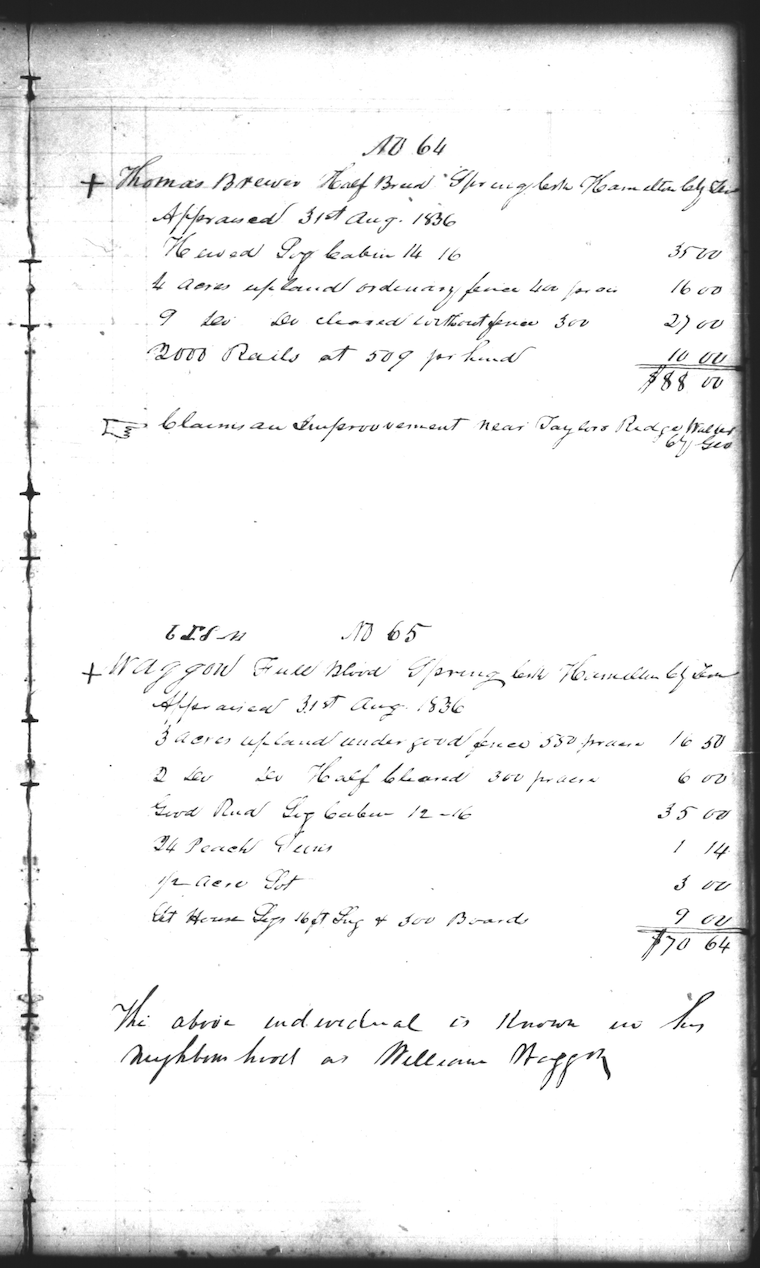 No 64
+ Thomas Brewer Half Breed Spring Crk Hamilton Cty Ten
Appraised 31st Aug. 1836
Hewed Log Cabin 14 16 35 00
4 acres upland ordinary fence 400 pr ac 16 00
9 Do Do cleared without fence 300 27 00
2000 Rails at 50¢ pr hund 10 00
$88 00
☞ Claims an Improovement near Taylors Ridge Walker
Cty Geo
No 65
+ Waggon Full Blood Spring Crk Hamilton Cty Ten
Appraised 31st Aug. 1836
3 acres upland under good fence 550 pr acre 16 50
2 Do Do Half Cleared 300 pr acre 6 00
Good Rnd Log Cabin 12-16 35 00
24 Peach Trees 1 14
1/2 Acre Lot 3 00
Set House Logs 16 ft Lng & 300 Boards 9 00
$70 64
The above individual is Known in his
neighbourhood as William Waggon